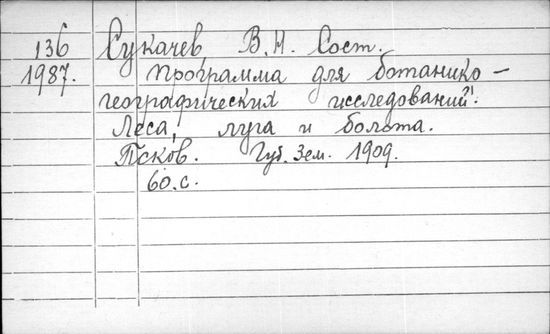 136 Сукачев, В.Н. Сост.
1987. Программа для ботанико-
географических исследований.
Леса, луга и болота.
Псков. Губ. Зем. 1909.
60.с.